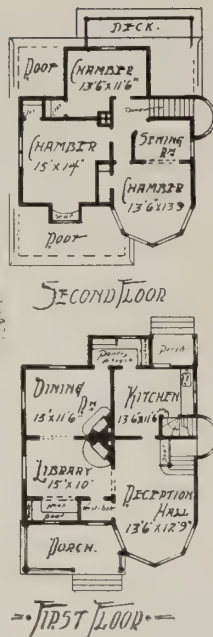 DECK.
ROOF
CHAMBER
13'6"X11'6"
Down
SEWING
RM
CHAMBER
15'X14'
CHAMBER
13'6"X13'9
SEAT
ROOF
SECOND FLOOR
Pantry
Porch
DINING
RM
15'X11'6
KITCHEN
13'6"X11'6"
LIBRARY
15'X10'
RECEPTION
HALL
13'6"X12'9"
Vestibule
PORCH.
FIRST FLOOR